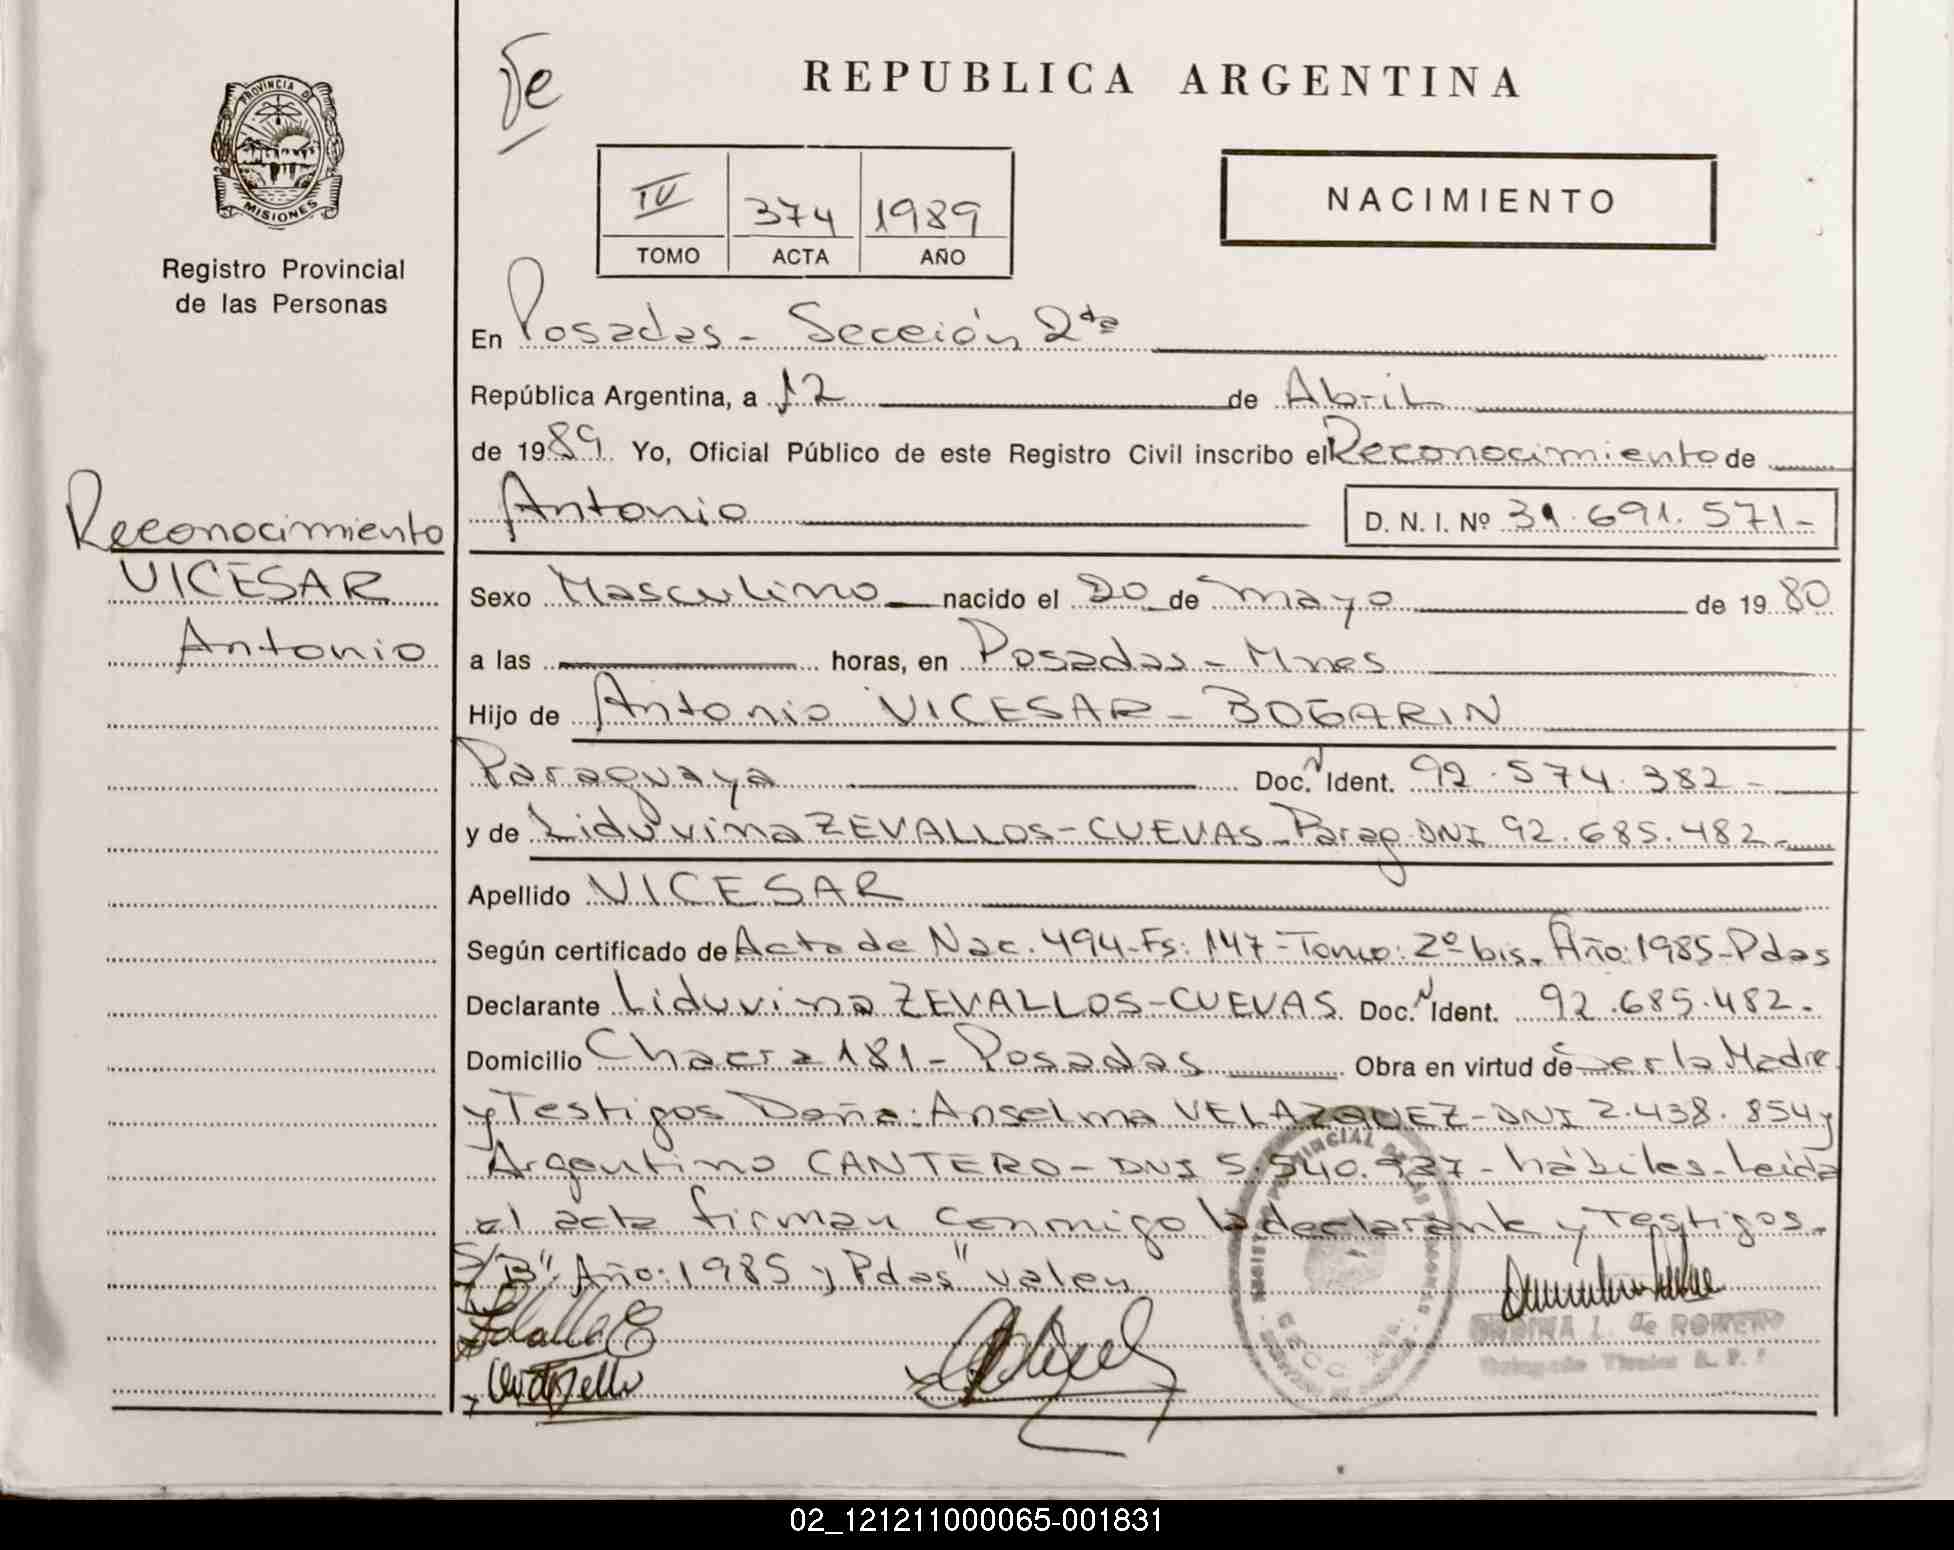 PROVINCIA DE
MISIONES
Registro Provincial
de las Personas
Reconocimiento
VICESAR
Antonio
REPUBLICA ARGENTINA
IV 374 1989
TOMO ACTA AÑO
NACIMIENTO
En Posadas - Sección 2da
República Argentina, a 12 de Abril
de 1989. Yo, Oficial Público de este Registro Civil inscribo el Reconocimiento de
Antonio D. N. I. Nº 31.691.571-
Sexo Masculino nacido el 20 de mayo de 1980
a las horas, en Posadas - Mnes
Hijo de Antonio VICESAR - BOGARIN
Paraguaya Doc. Ident. 92.574.382-
y de Liduvina ZEVALLOS-CUEVAS - Parag. DNI 92.685.482-
Apellido VICESAR
Según certificado de Acta de Nac. 494-Fs: 147-Tomo: 2º bis. Año: 1985-Pdas
Declarante Liduvina ZEVALLOS-CUEVAS Doc. Ident. 92.685.482.
Domicilio Chacra 181 - Posadas Obra en virtud de Ser la Madre
y Testigos Doña: Anselma VELAZQUEZ-DNI 2.438.854 y
Argentino CANTERO - DNI 5.540.937 - hábiles - Leída
el acta firman conmigo la declarante y Testigos.
S/B": Año: 1985 y Pdas" valen
L. de ROMERO
02_121211000065-001831